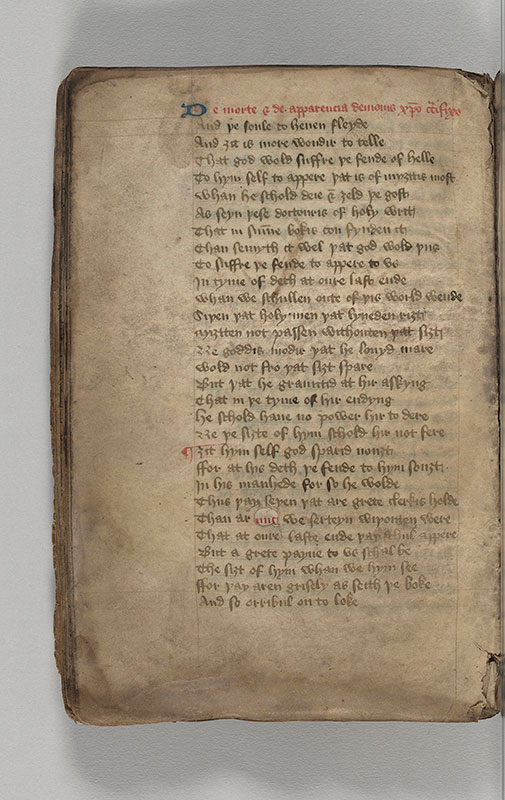 De morte & de apparencia demonis xp̄o c̄ifixo
And þe soule to heuen fleyde
And ȝit is more wondir to telle
That god wold suffre þe fende of helle
To hym self to appere þat is of myȝttis most
Whan he schold deie & ȝeld þe gost
As seyn þese doctouris of holy writt
That in summe bokis con fynden it
Than semyth it wel þat god wold þus
To suffre þe fende to appere to vs
In tyme of deth at oure last ende
Whan we schullen oute of þis world wende
Siþen þat holy men þat lyueden riȝt
Myȝtten not passen withouten þat siȝt
Ne goddis modir þat he louyd mare
Wold not fro þat siȝt spare
But þat he grauntid at hir askyng
That in þe tyme of hir endyng
he schold haue no power hir to dere
Ne þe siȝte of hym schold hir not fere
¶ ȝit hym self god sparid nouȝt
ffor at his deth þe fende to hym souȝt
In his manhede for so he wolde
Thus þay seyen þat are grete clerkis holde
Than ar we serteyn wiþouten were
That at oure laste ende þay schul appere
But a grete payne to vs schal be
The siȝt of hym whan we hym see
ffor þay aren grisely as seith þe boke
And so orribul on to loke